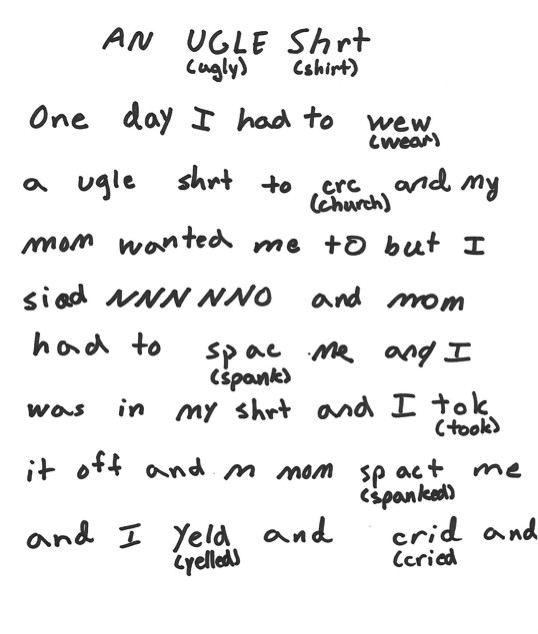 AN UGLE Shrt
(ugly) (shirt)
One day I had to wew
(wear)
a ugle shrt to crc and my
(church)
mom wanted me to but I
siad NNNNNO and mom
had to spac me and I
(spank)
was in my shrt and I tok
(took)
it off and m mom spact me
(spanked)
and I yeld and crid and
(yelled) (cried